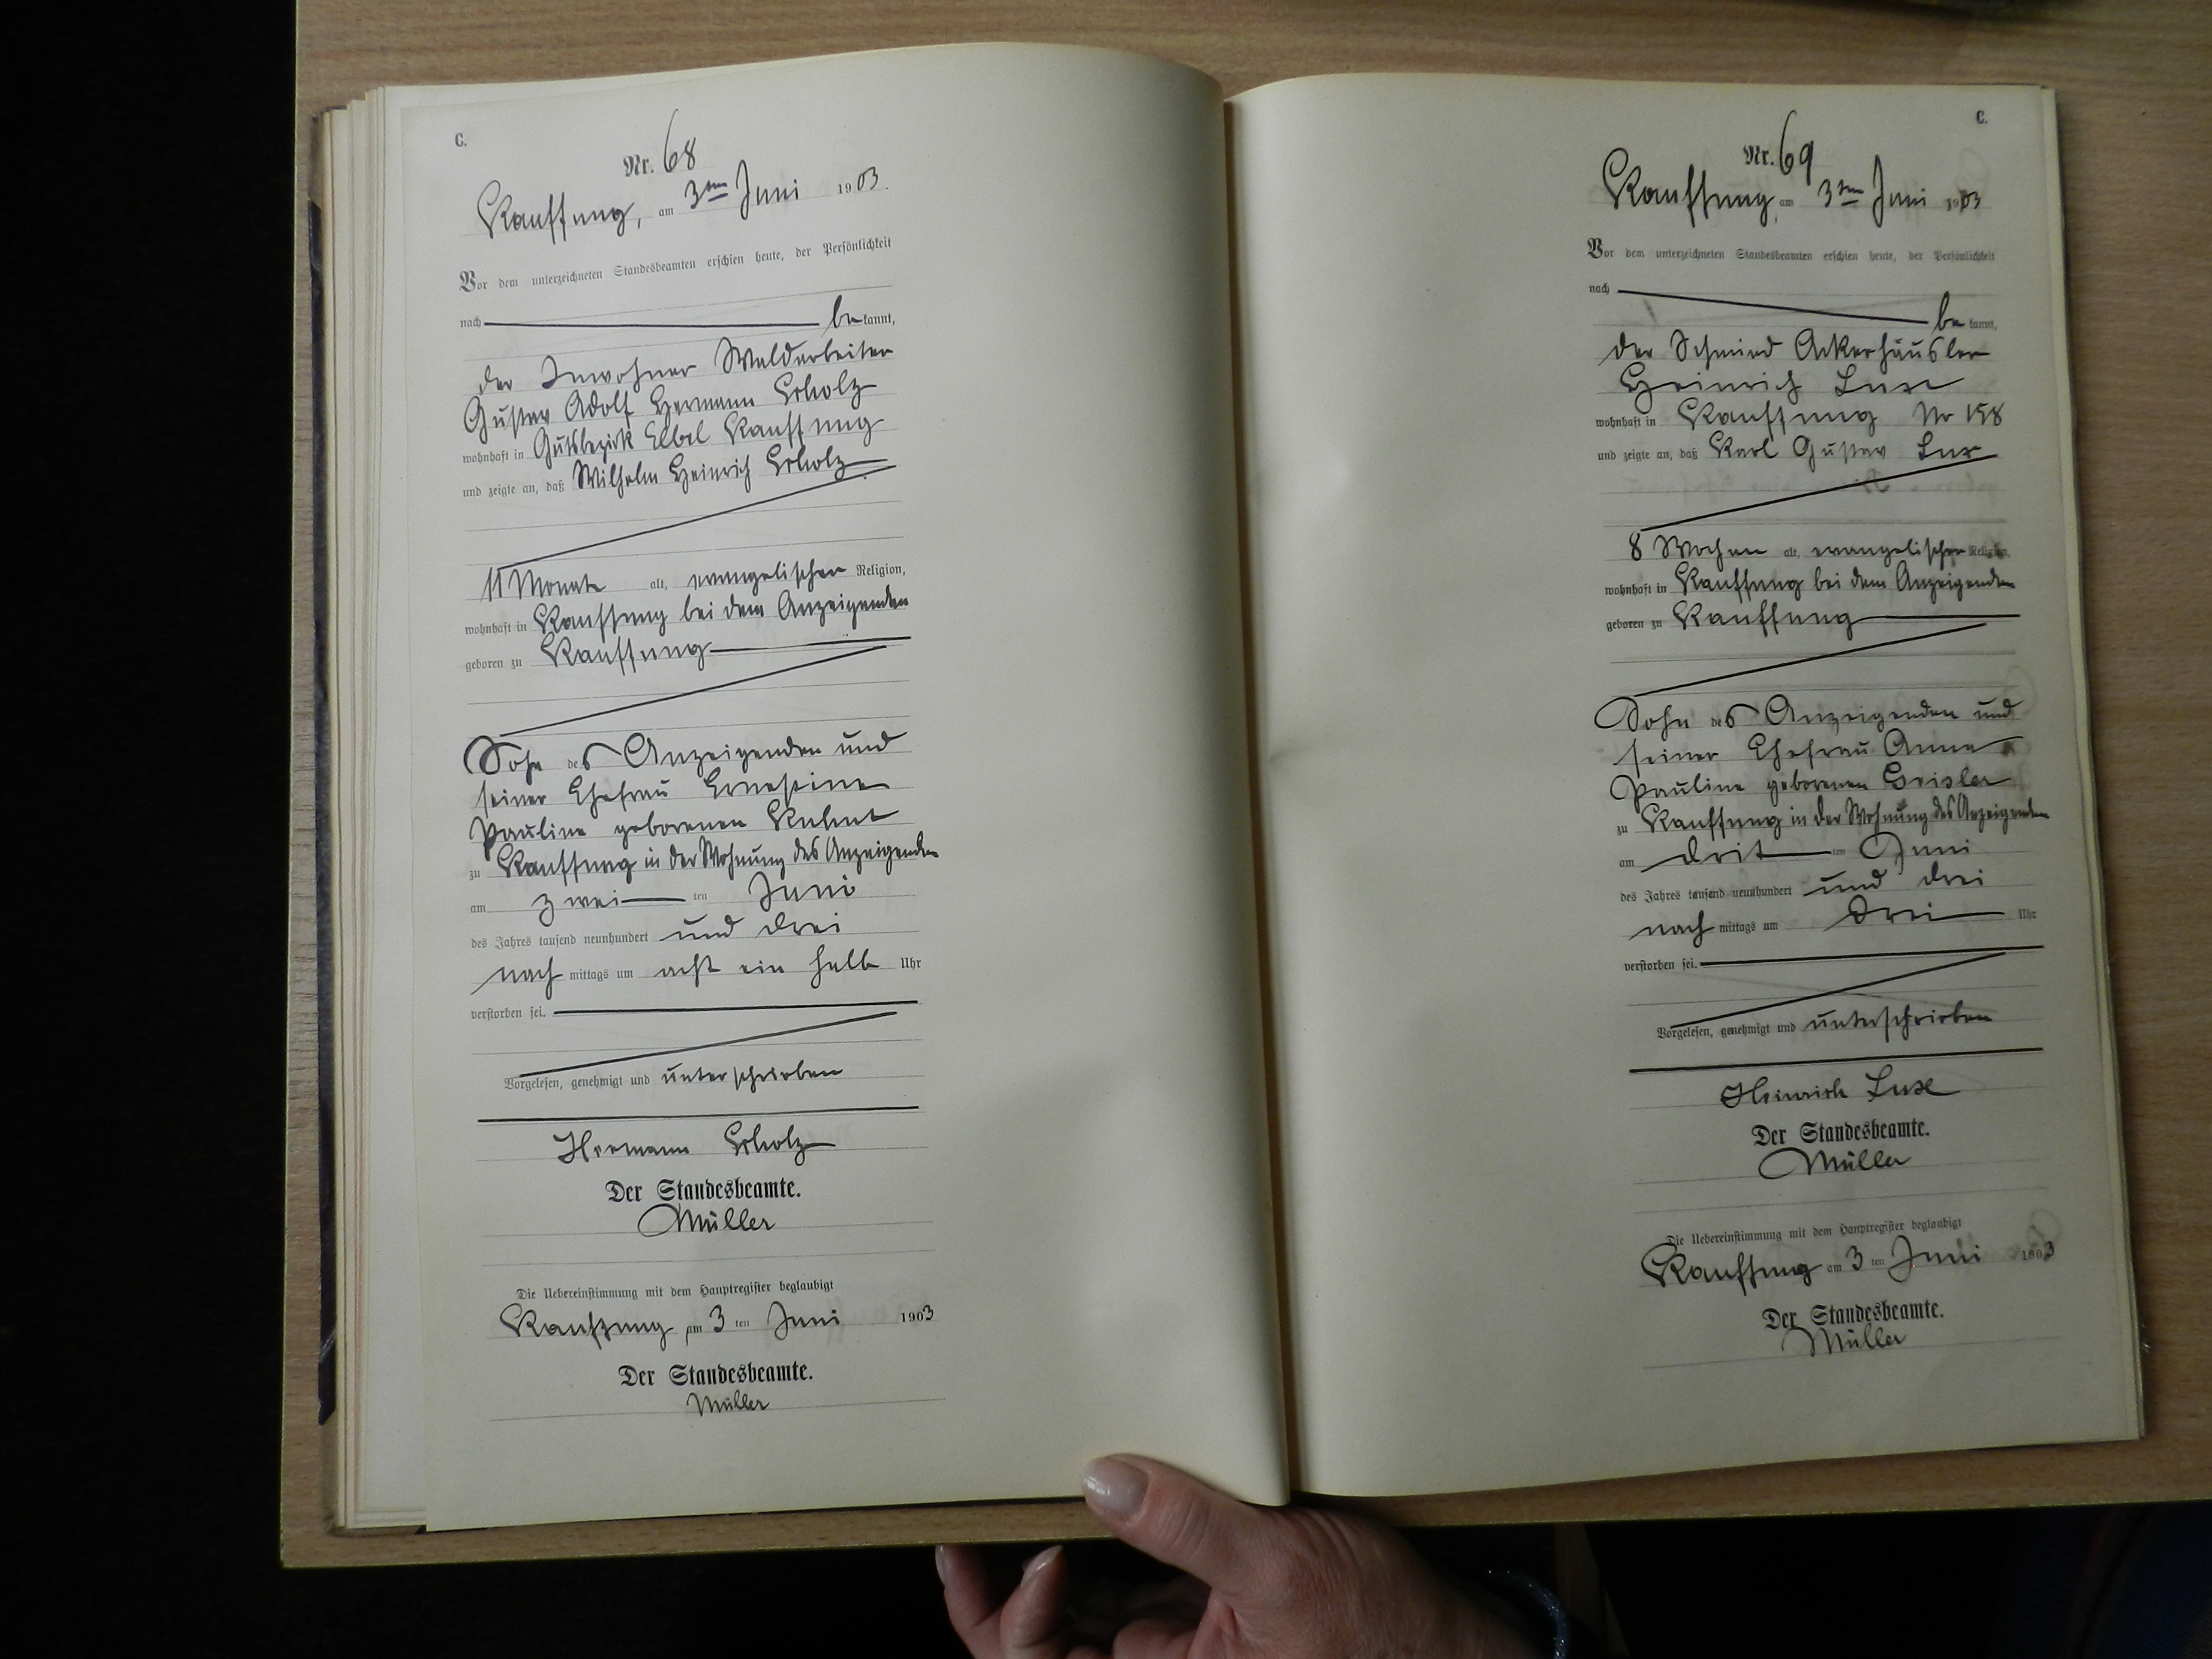 C.
Nr. 68
Kauffung, am 3ten Juni 1903.
Vor dem unterzeichneten Standesbeamten erschien heute, der Persönlichkeit
nach bekannt,
der Inwohner Waldarbeiter
Gustav Adolf Hermann
wohnhaft in Gutsbezirk Elbel Kauffung
und zeigte an, daß Wilhelm Heinrich
11 Monate alt, evangelischer Religion,
wohnhaft in Kauffung bei dem Anzeigenden
geboren zu Kauffung
Sohn des Anzeigenden und
seiner Ehefrau Ernestine
Pauline geborenen
zu Kauffung in der Wohnung des Anzeigenden
am zweiten Juni
des Jahres tausend neunhundert und drei
nachmittags um acht ein halb Uhr
verstorben sei.
Vorgelesen, genehmigt und unterschrieben
Hermann
Der Standesbeamte.
Müller
Die Uebereinstimmung mit dem Hauptregister beglaubigt
Kauffung am 3ten Juni 1903
Der Standesbeamte.
Müller
C.
Nr. 69
Kauffung, am 3ten Juni 1903
Vor dem unterzeichneten Standesbeamten erschien heute, der Persönlichkeit
nach bekannt,
der Schmied Ackerhäusler
Heinrich Luxe
wohnhaft in Kauffung Nr 158
und zeigte an, daß Karl Gustav Lux
8 Wochen alt, evangelischer Religion,
wohnhaft in Kauffung bei dem Anzeigenden
geboren zu Kauffung
Sohn des Anzeigenden und
seiner Ehefrau Anna
Pauline geborenen Geisler
zu Kauffung in der Wohnung des Anzeigenden
am dritten Juni
des Jahres tausend neunhundert und drei
nachmittags um drei Uhr
verstorben sei.
Vorgelesen, genehmigt und unterschrieben
Heinrich Luxe
Der Standesbeamte.
Müller
Die Uebereinstimmung mit dem Hauptregister beglaubigt
Kauffung am 3ten Juni 1903
Der Standesbeamte.
Müller